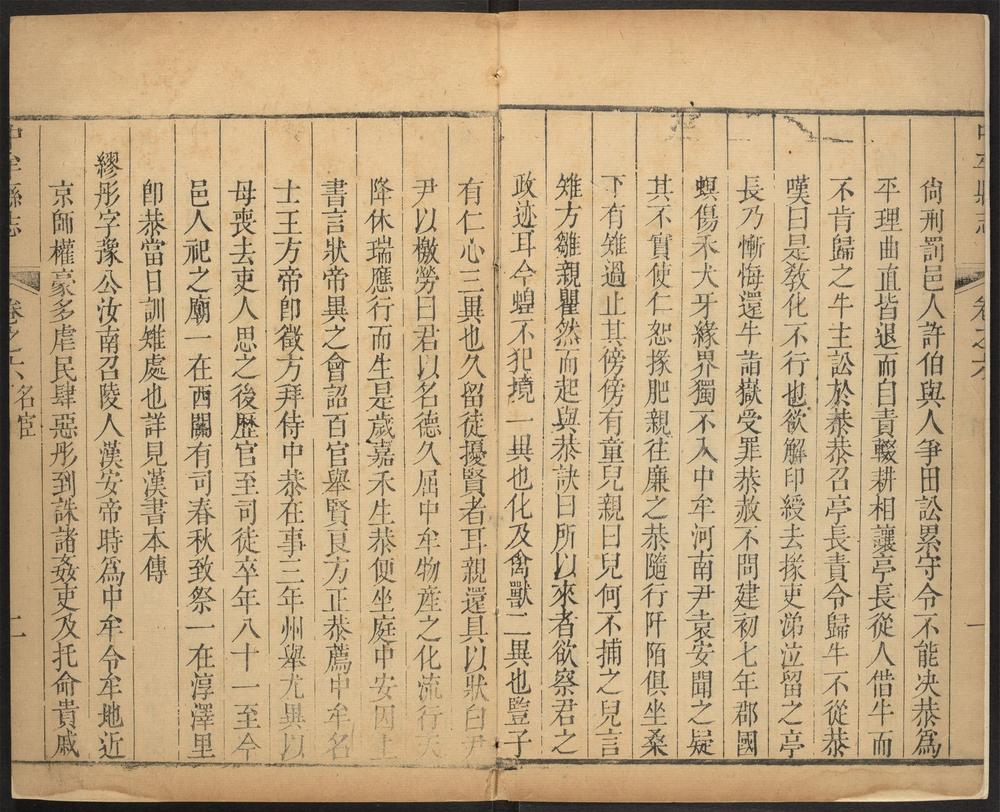 尚刑罰邑人許伯與人爭田訟累守令不能决恭爲
平理曲直皆退而自責輟耕相讓亭長從人借牛而
不肯歸之牛主訟於恭恭召亭長責令歸牛不從恭
嘆曰是敎化不行也欲解印綬去掾吏涕泣留之亭
長乃慚悔還牛詣獄受罪恭赦不問建初七年郡國
螟傷禾犬牙緣界獨不入中牟河南尹袁安聞之疑
其不實使仁恕掾肥親往廉之恭隨行阡陌俱坐桑
下有雉過止其傍傍有童兒親曰兒何不捕之兒言
雉方雛親瞿然而起與恭訣曰所以來者欲察君之
政迹耳今蝗不犯境一異也化及禽獸二異也豎子
有仁心三異也久留徒擾賢者耳親還具以狀白尹
尹以檄勞曰君以名德久屈中牟物產之化流行天
降休瑞應行而生是歲嘉禾生恭便坐庭中安因上
書言狀帝異之會詔百官舉賢良方正恭薦中牟名
士王方帝卽徵方拜侍中恭在事三年州舉尤異以
母喪去吏人思之後歷官至司徒卒年八十一至今
邑人祀之廟一在西關有司春秋致祭一在淳澤里
卽恭當日訓雉處也詳見漢書本傳
繆彤字豫公汝南召陵人漢安帝時爲中牟令牟地近
京師權豪多虐民肆惡彤到誅諸姦吏及托命貴戚
中牟縣志 卷之六 名宦 二